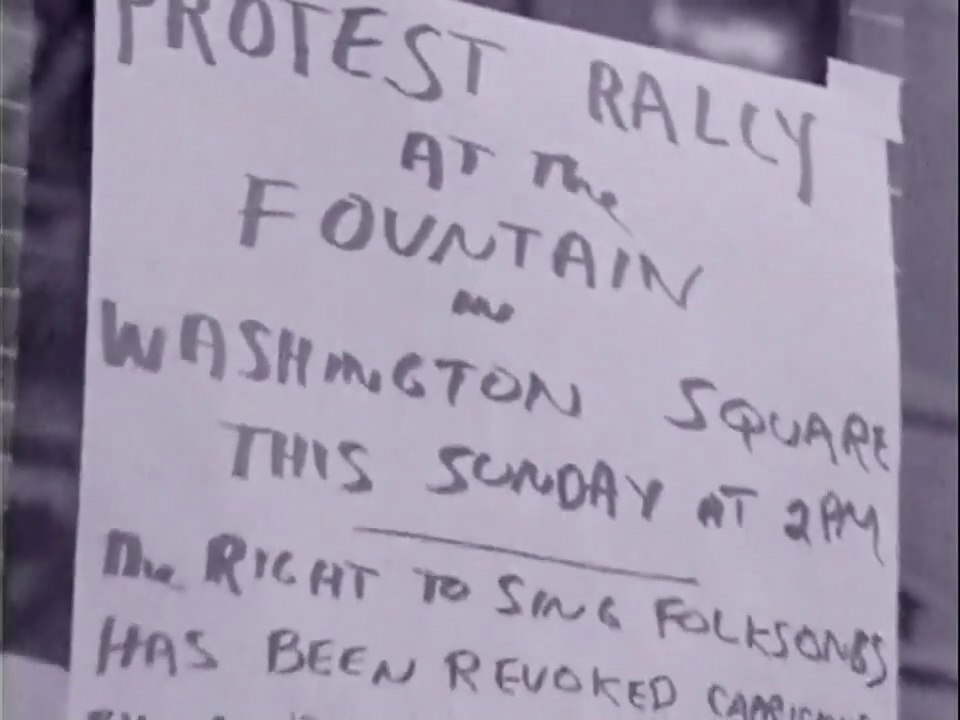 PROTEST RALLY
AT The
FOUNTAIN
in
WASHINGTON SQUARE
THIS SUNDAY AT 2PM
The RIGHT TO SING FOLKSONGS
HAS BEEN REVOKED